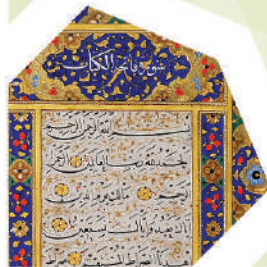 سورة فاتحة الكتاب
بسم الله الرحمن الرحيم
الحمد لله رب العالمين الرحمن
الرحيم مالك يوم الدين
اياك نعبد واياك نستعين
اهدنا الصراط المستقيم صراط